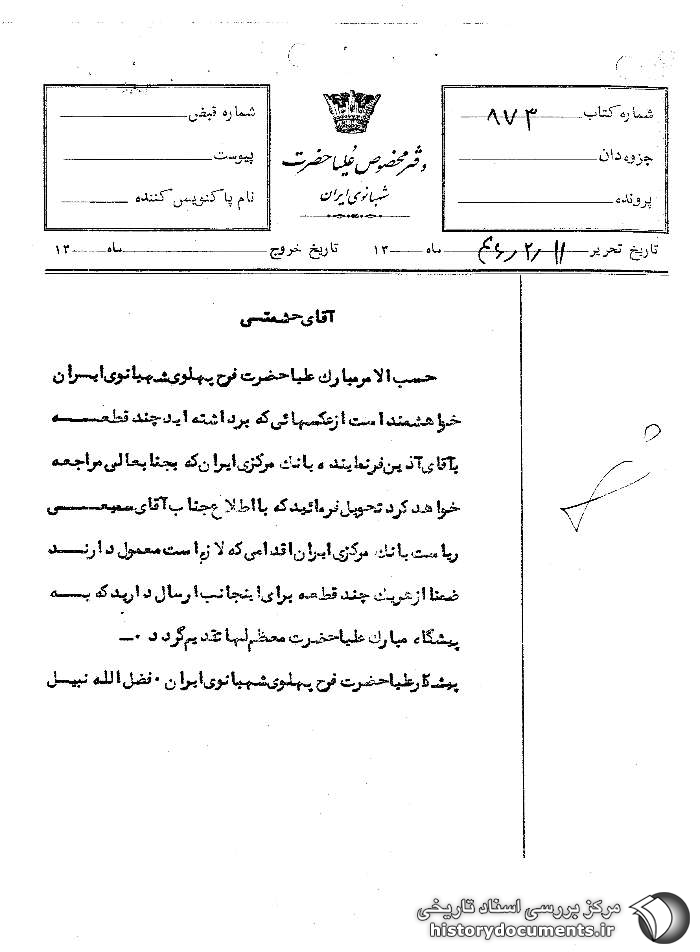 شماره کتاب ۸۷۳
جزوه‌دان
پرونده
دفتر مخصوص علیاحضرت
شهبانوی ایران
شماره قبض
پیوست
نام پاکنویس کننده
تاریخ تحریر ۴۶/۲/۱۱ ماه ۱۳
تاریخ خروج ماه ۱۳
آقای حشمتی
حسب الامر مبارك علیاحضرت فرح پهلوی شهبانوی ایران
خواهشمند است از عکسهائی که برداشته اید چند قطعه
بآقای آذین فر نماینده بانك مرکزی ایران که بجنابعالی مراجعه
خواهد کرد تحویل فرمائید که با اطلاع جناب آقای سمیعی
ریاست بانك مرکزی ایران اقدامی که لازم است معمول دارند
ضمنا از هریك چند قطعه برای اینجانب ارسال دارید که به
پیشگاه مبارك علیاحضرت معظم لها تقدیم گردد ۰ــ
پیشکار علیاحضرت فرح پهلوی شهبانوی ایران ۰ فضل الله نبیل
مرکز بررسی اسناد تاریخی
historydocuments.ir